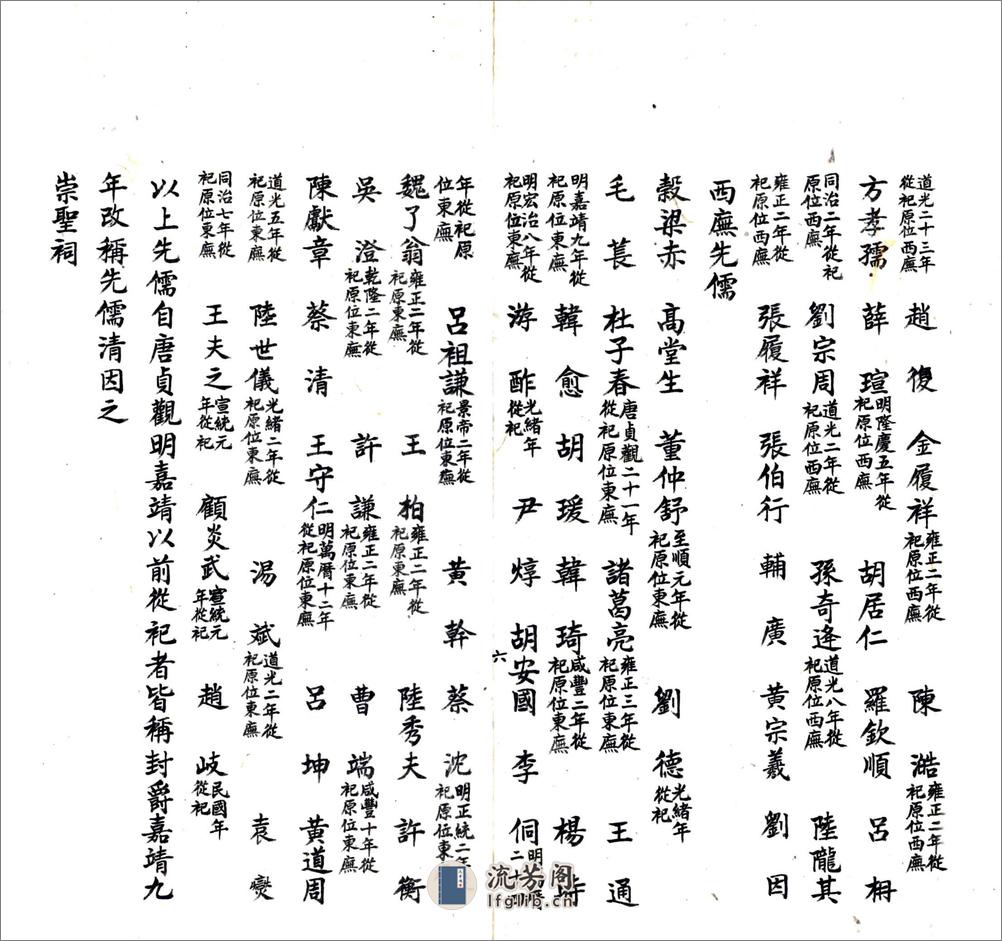 道光二十三年從祀原位西廡 趙復 金履祥 雍正二年從祀原位西廡 陳澔 雍正二年從祀原位西廡
方孝孺 薛瑄 明隆慶五年從祀原位西廡 胡居仁 羅欽順 呂柟
同治二年從祀原位西廡 劉宗周 道光二年從祀原位西廡 孫奇逢 道光八年從祀原位西廡 陸隴其
雍正二年從祀原位西廡 張履祥 張伯行 輔廣 黃宗羲 劉因
西廡先儒
穀梁赤 高堂生 董仲舒 至順元年從祀原位東廡 劉德 光緒年從祀
毛萇 杜子春 唐貞觀二十一年從祀原位東廡 諸葛亮 雍正三年從祀原位東廡 王通
明嘉靖九年從祀原位東廡 韓愈 胡瑗 韓琦 咸豐二年從祀原位東廡 楊時
明宏治八年從祀原位東廡 游酢 光緒年從祀 尹焞 胡安國 李侗 明
六
年從祀原位東廡 呂祖謙 景帝二年從祀原位東廡 黃幹 蔡沈 明正統二年祀原位東
魏了翁 雍正二年從祀原東廡 王柏 雍正二年從祀原東廡 陸秀夫 許衡
吳澄 乾隆二年從祀原位東廡 許謙 雍正二年從祀原位東廡 曹端 咸豐十年從祀原位東廡
陳獻章 蔡清 王守仁 明萬曆十二年從祀原位東廡 呂坤 黃道周
道光五年從祀原位東廡 陸世儀 光緒二年從祀原位東廡 湯斌 道光二年從祀原位東廡 袁燮
同治七年從祀原位東廡 王夫之 宣統元年從祀 顧炎武 宣統元年從祀 趙岐 民國年從祀
以上先儒自唐貞觀明嘉靖以前從祀者皆稱封爵嘉靖九
年改稱先儒清因之
崇聖祠
流芳阁
lfglib.cn